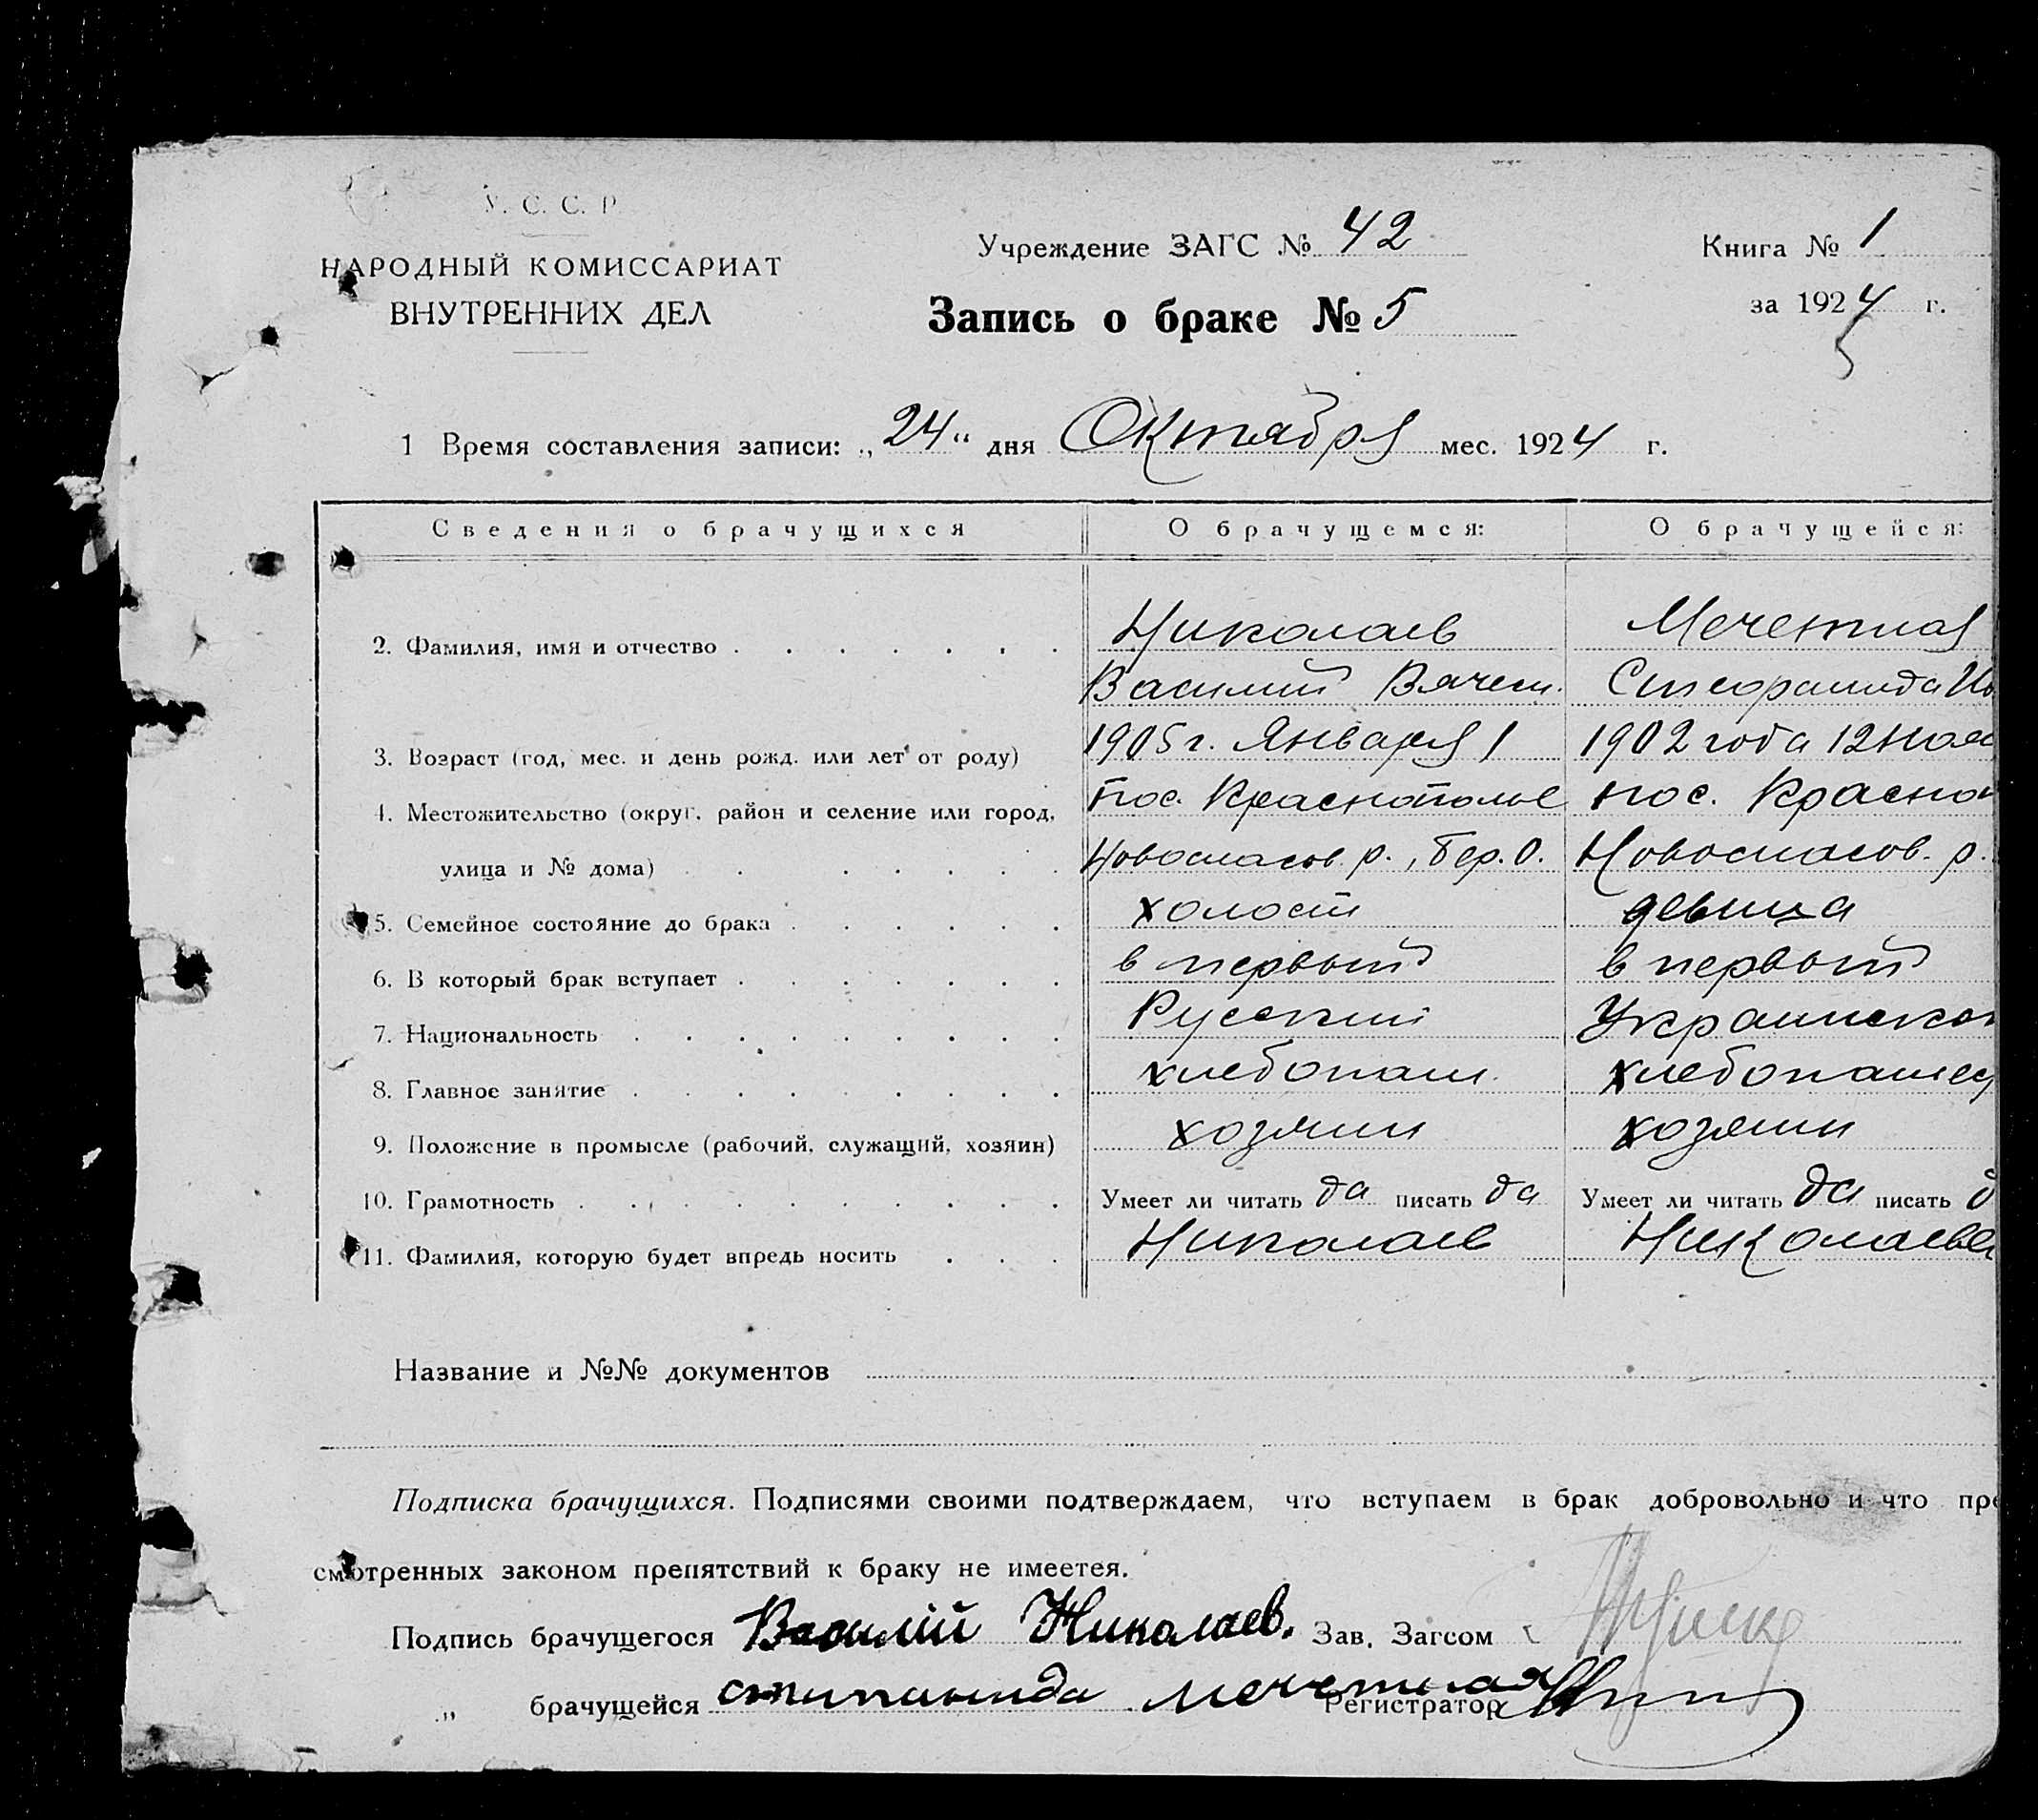 У. С. С. Р.
НАРОДНЫЙ КОМИССАРИАТ
ВНУТРЕННИХ ДЕЛ
Учреждение ЗАГС № 42
Книга № 1
Запись о браке № 5
за 1924 г.
1 Время составления записи: „24“ дня Октября мес. 1924 г.
Сведения о брачущихся О брачущемся: О брачущейся:
2. Фамилия, имя и отчество Николаев Мечетная
Василий Вячесл.
3. Возраст (год, мес. и день рожд. или лет от роду) 1905 г. Января 1 1902 года 12 ноя
4. Местожительство (округ, район и селение или город, пос. Краснополье пос. Красноп
улица и № дома) Новоспасов. р., Бер. О. Новоспасов. р.
5. Семейное состояние до брака холост девица
6. В который брак вступает в первый в первый
7. Национальность Русский Украинская
8. Главное занятие хлебопаш. хлебопашец
9. Положение в промысле (рабочий, служащий, хозяин) хозяин хозяин
10. Грамотность Умеет ли читать да писать да Умеет ли читать да писать д
11. Фамилия, которую будет впредь носить Николаев Николаева
Название и №№ документов
Подписка брачущихся. Подписями своими подтверждаем, что вступаем в брак добровольно и что пре
смотренных законом препятствий к браку не имеетея.
Подпись брачущегося Василий Николаев. Зав. Загсом
„ брачущейся Мечетная Регистратор